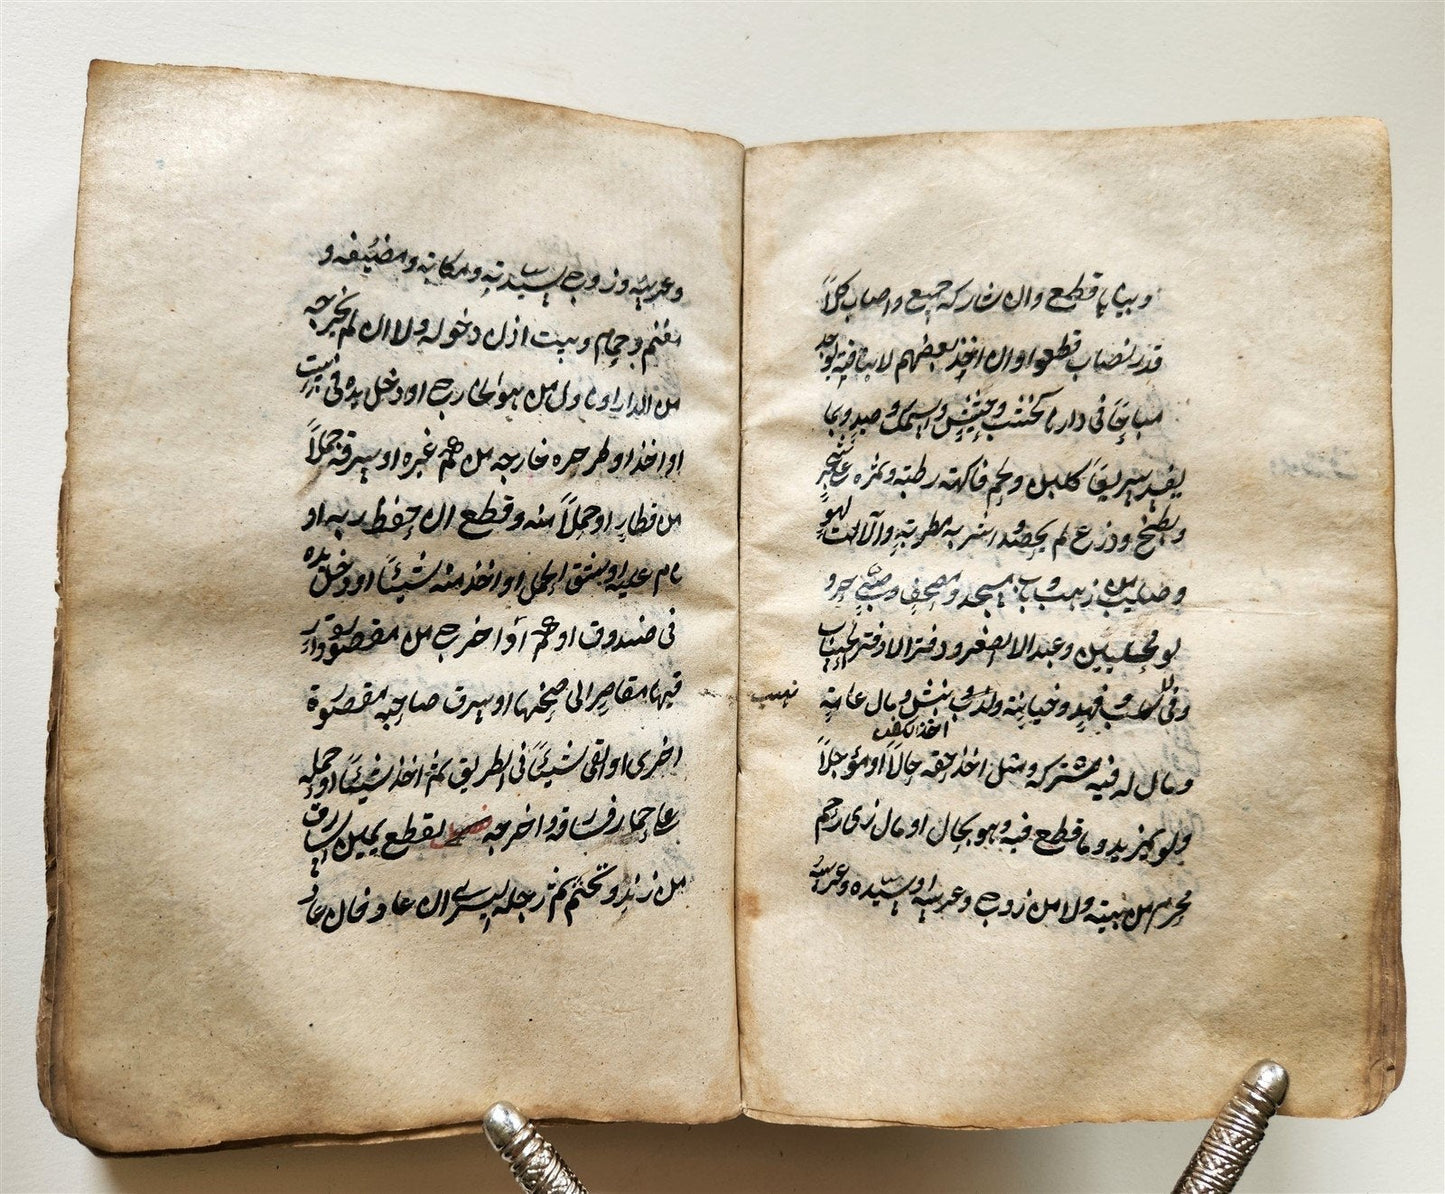 وبينا بها قطع وان شاركه جميع واصاب كلاً
قدر نصاب قطعوا وان اخذ بعضهم لا بتافه يوجد
مباحًا في دارنا كخشب وحشيش وسمك وصيد وبما
يفسد سريعًا كلبن ولحم وفاكهة رطبة وثمرة على شجر
وبطيخ وزرع لم يحصد واشربة مطربة وآلات لهو
وصليب من ذهب وباب مسجد ومصحف وصبي حر و
لو محليين وعبد الا الصغير ودفتر الا دفتر الحساب
وفي كلب وفهد وخيانة ونهب ونبش ومال عامة
اخذ الكفن
نهب
ومال له فيه شركة ومثل اخذ حقه حالاً او مؤجلاً
ولو بمزيد وما قطع فيه وهو بحال او مال ذي رحم
محرم من بيته ولا من زوج وعرسه او سيده وعرسه
وعرسه وزوج سيدته ومكاتبه ومضيفه و
مغنم وحمام وبيت اذن دخوله ولا ان لم يخرجه
من الدار او ناول من هو خارج او ادخل يده في بيت
او اخذ او طر صرة خارجة من كم غيره او سرق جملاً
من قطار او حملاً منه وقطع ان حفظ ربه او
نام عليه او شق الحمل او اخذ منه شيئًا او ادخل يده
في صندوق او كم او اخرج من مقصورة دار
فيها مقاصر الى صحنها او سرق صاحب مقصورة
اخرى او القى شيئًا في الطريق ثم اخذ شيئًا او حمله
على حمار فساقه واخرجه فصل يقطع يمين السارق
من زنده وتحسم ثم رجله اليسرى ان عاد فان عاد